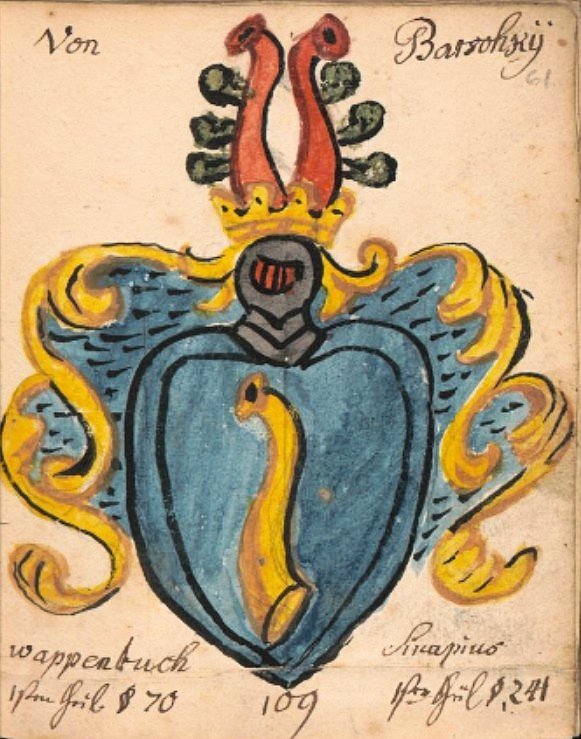 Von Barsohsÿ
61.
wappenbuch Sinapius
1sten theil § 70 109 1ster theil §. 241